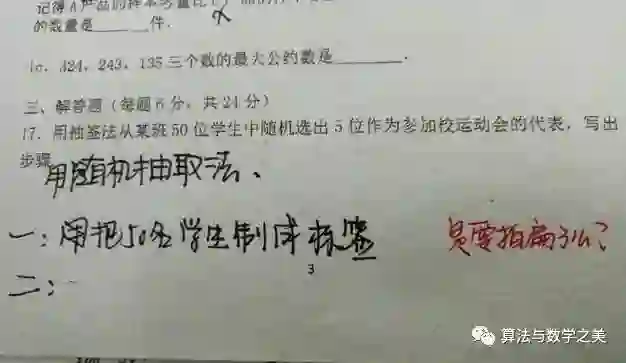 记得A产品的样本容量比
的数量是______件.
16. 324, 243, 135 三个数的最大公约数是______.
三、解答题（每题6分，共24分）
17. 用抽签法从某班50位学生中随机选出5位作为参加校运动会的代表，写出
步骤
用随机抽取法、
一：用把50名学生制成标签
是要拍扁了么？
二：
3
算法与数学之美